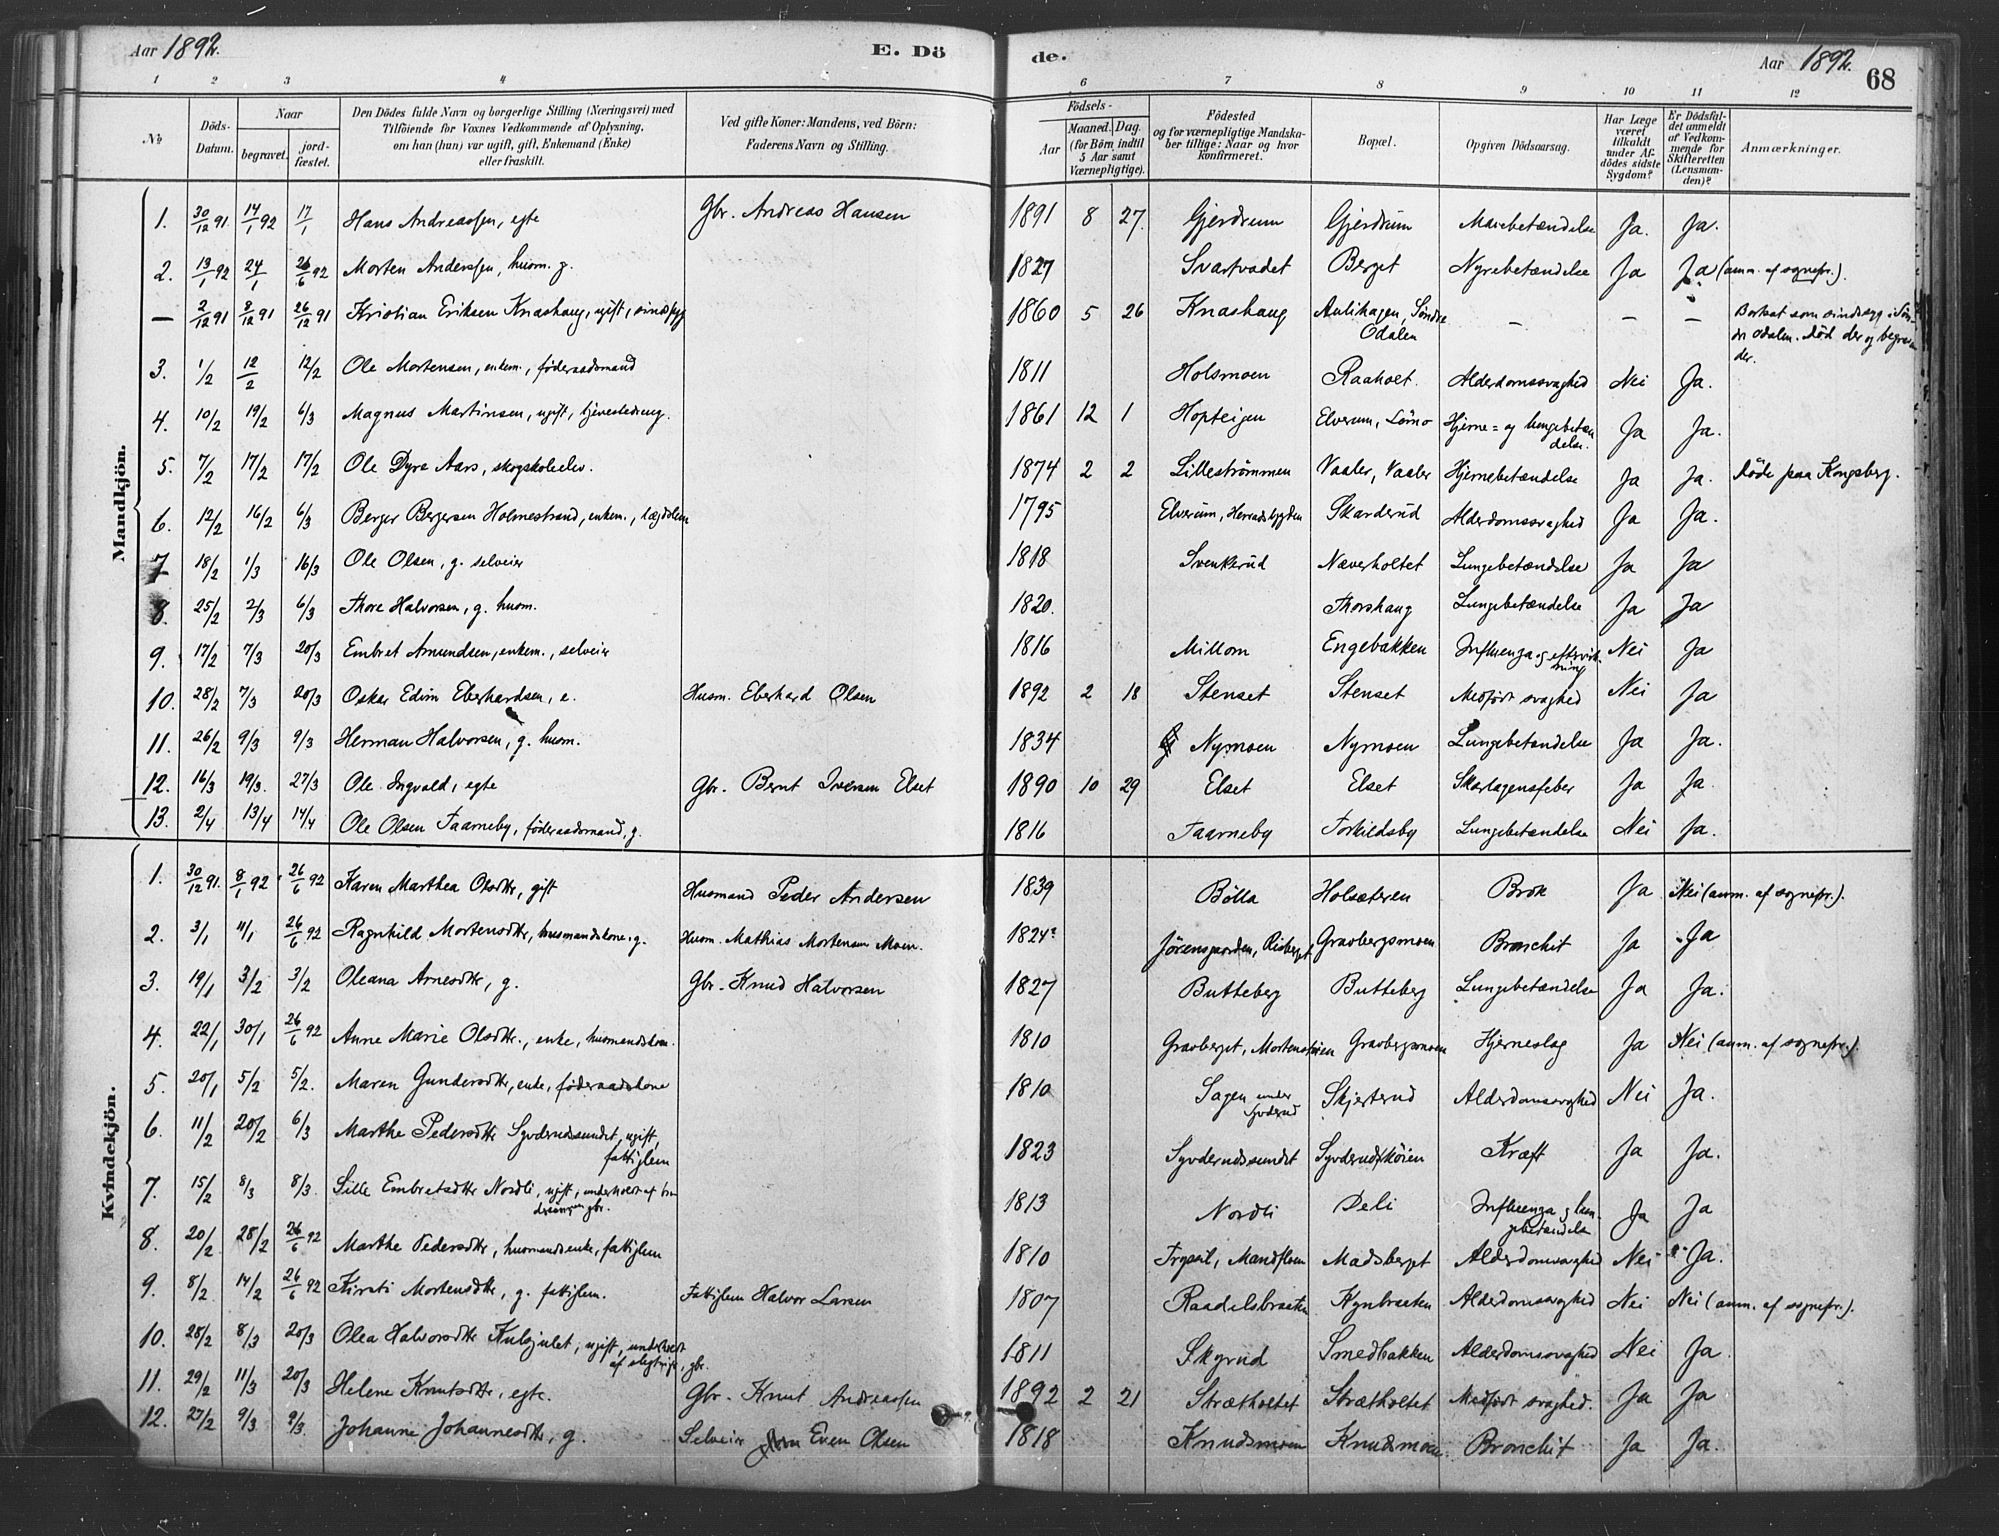 Aar 1892.
E. Dö
de.
Aar 1892.
68
1 2 3 4 6 7 8 9 10 11 12
No.
Döds-Datum.
Naar
begravet.
jord-fæstet.
Den Dödes fulde Navn og borgerlige Stilling (Næringsvei) med
Tilföiende for Voxnes Vedkommende af Oplysning,
om han (hun) var ugift, gift, Enkemand (Enke)
eller fraskilt.
Ved gifte Koner: Mandens, ved Börn:
Faderens Navn og Stilling.
Födsels-
Aar
Maaned.
Dag.
(for Børn indtil
5 Aar samt
Værnepligtige).
Födested
og for værnepligtige Mandska-
ber tillige: Naar og hvor
konfirmeret.
Bopæl.
Opgiven Dödsaarsag.
Har Læge
været
tilkaldt
under Af-
dödes sidste
Sygdom?
Er Dödsfal-
det anmeldt
af Vedkom-
mende for
Skifteretten
(Lensman-
den)?
Anmærkninger.
Mandkjön.
1. 30/12 91 14/1 92 17/1 Hans Andreassen, egte Gbr. Andreas Hansen 1891 8 27. Gjerdrum Gjerdrum Mavebetændelse Ja. Ja.
2. 13/1 92 24/1 26/6 92 Morten Anderssen, husm. g. 1827 Svartvadet Berget Nyrebetændelse Ja Ja (anm. af sognepr.).
— 2/12 91 8/12 91 26/12 91 Kristian Eriksen Knashaug, ugift, sindssyg 1860 5 26 Knashaug Aulihagen, Søndre Odalen — — — Bortsat som sindssyg i Søn-
dre Odalen. Død der og begravet
der.
3. 1/2 12/2 12/2 Ole Mortensen, enkem., føderaadsmand 1811 Holsmoen Raaholt. Alderdomssvaghed Nei Ja.
4. 10/2 19/2 6/3 Magnus Martinsen, ugift, tjenestedreng. 1861 12 1 Hopteigen Elverum, Sørno Hjerne= og lungebetæn
delse. Ja Ja.
5. 7/2 17/2 17/2 Ole Dyre Aars, skogskoleelev. 1874 2 2 Lillestrømmen Vaaler, Vaaler Hjernebetændelse Ja Ja. Døde paa Kongsberg.
6. 12/2 16/2 6/3 Berger Bergersen Holmestrand, enkem., lægdslem 1795 Elverum, Hernadsbygden Skarderud Alderdomssvaghed Ja Ja.
7 18/2 1/3 16/3 Ole Olsen, g. selveier 1818 Svenkerud Næverholtet Lungebetændelse Ja Ja
8. 25/2 2/3 6/3 Thore Halvorsen, g. husm. 1820. Thorshaug Lungebetændelse Ja Ja
9. 17/2 7/3 20/3 Embret Amundsen, enkem., selveier 1816 Millom Engebakken Influenza og eftervirk-
ning Nei Ja
10. 28/2 7/3 20/3 Oskar Edvin Eberhardsen, e. Husm. Eberhard Olsen 1892 2 18 Stenset Stenset Medfødt svaghed Nei Ja
11. 26/2 9/3 9/3 Herman Halvorsen, g. husm. 1834 Nymoen Nymoen Lungebetændelse Ja Ja.
12. 16/3 19/3. 27/3 Ole Ingvald, egte Gbr. Bernt Iversen Elset 1890 10 29 Elset Elset Skarlagensfeber Ja Ja.
13. 2/4 13/4 14/4 Ole Olsen Taarneby, føderaadsmand, g. 1816 Taarneby Torkildsby Lungebetændelse Nei Ja.
Kvindekjön.
1. 30/12 91. 8/1 92 26/6 92 Karen Marthea Olsdtr, gift Husmand Peder Andersen 1839 Bølla Holsæteren Brok Ja Nei (anm. af sognepr.).
2. 3/1 11/1 26/6 92 Ragnhild Mortensdtr, husmandskone, g. Husm. Mathias Mortensen Moen. 1824? Jørensgaarden, Risberget Gravbergsmoen Bronchit Ja Ja
3. 19/1 3/2 3/2 Oleana Arnesdtr, g. Gbr. Knud Halvorsen 1827 Butteberg Butteberg Lungebetændelse Ja Ja.
4. 22/1 30/1 26/6 92 Anne Marie Olsdtr., enke, husmandskone. 1810 Gravberget, Mortens Gravbergsmoen Hjerneslag Ja Nei (anm. af sognepr.).
5. 20/1 5/2 5/2. Maren Gundersdtr, enke, føderaadskone 1810 Sagen under
Syverud Skjerterud Alderdomssvaghed Nei Ja.
6. 11/2 20/2 6/3 Marthe Pedersdtr Syverudssundet, ugift,
fattiglem 1823 Syverudssundet Syverudskøien Kræft Ja Ja.
7. 15/2 8/3 8/3. Sille Embretsdtr Nordli, ugift, underholdt af bro
dersøn, gbr. 1813 Nordli Deli Influenza og lun-
gebetændelse Ja Ja
8. 20/2 28/2 26/6 92 Marthe Pedersdtr, husmandsenke, fattiglem 1810 Trysil, Mandfloen Madsberget Alderdomssvaghed Nei Ja.
9. 8/2 14/2 26/6 92 Kirsti Mortensdtr, g. fattiglem. Fattiglem Halvor Larsen 1807 Raadelsbraaten Kynbraaten Alderdomssvaghed Nei Nei (anm. af sognepr.).
10. 28/2 8/3 20/3 Olea Halvorsdtr ugift, underholdt
af slegtning, gbr. 1811 Skyrud Smedbakken Alderdomssvaghed Nei Ja
11. 29/2 11/3 20/3 Helene Knutsdtr, egte. Gbr. Knut Andreassen 1892 2 21 Strætholtet Strætholtet Medfødt svaghed. Ja Ja
12. 27/2 9/3 9/3. Johanne Johannesdtr, g. Selveier Even Olsen 1818 Knudsmoen Knudsmoen. Bronchit Ja Ja.